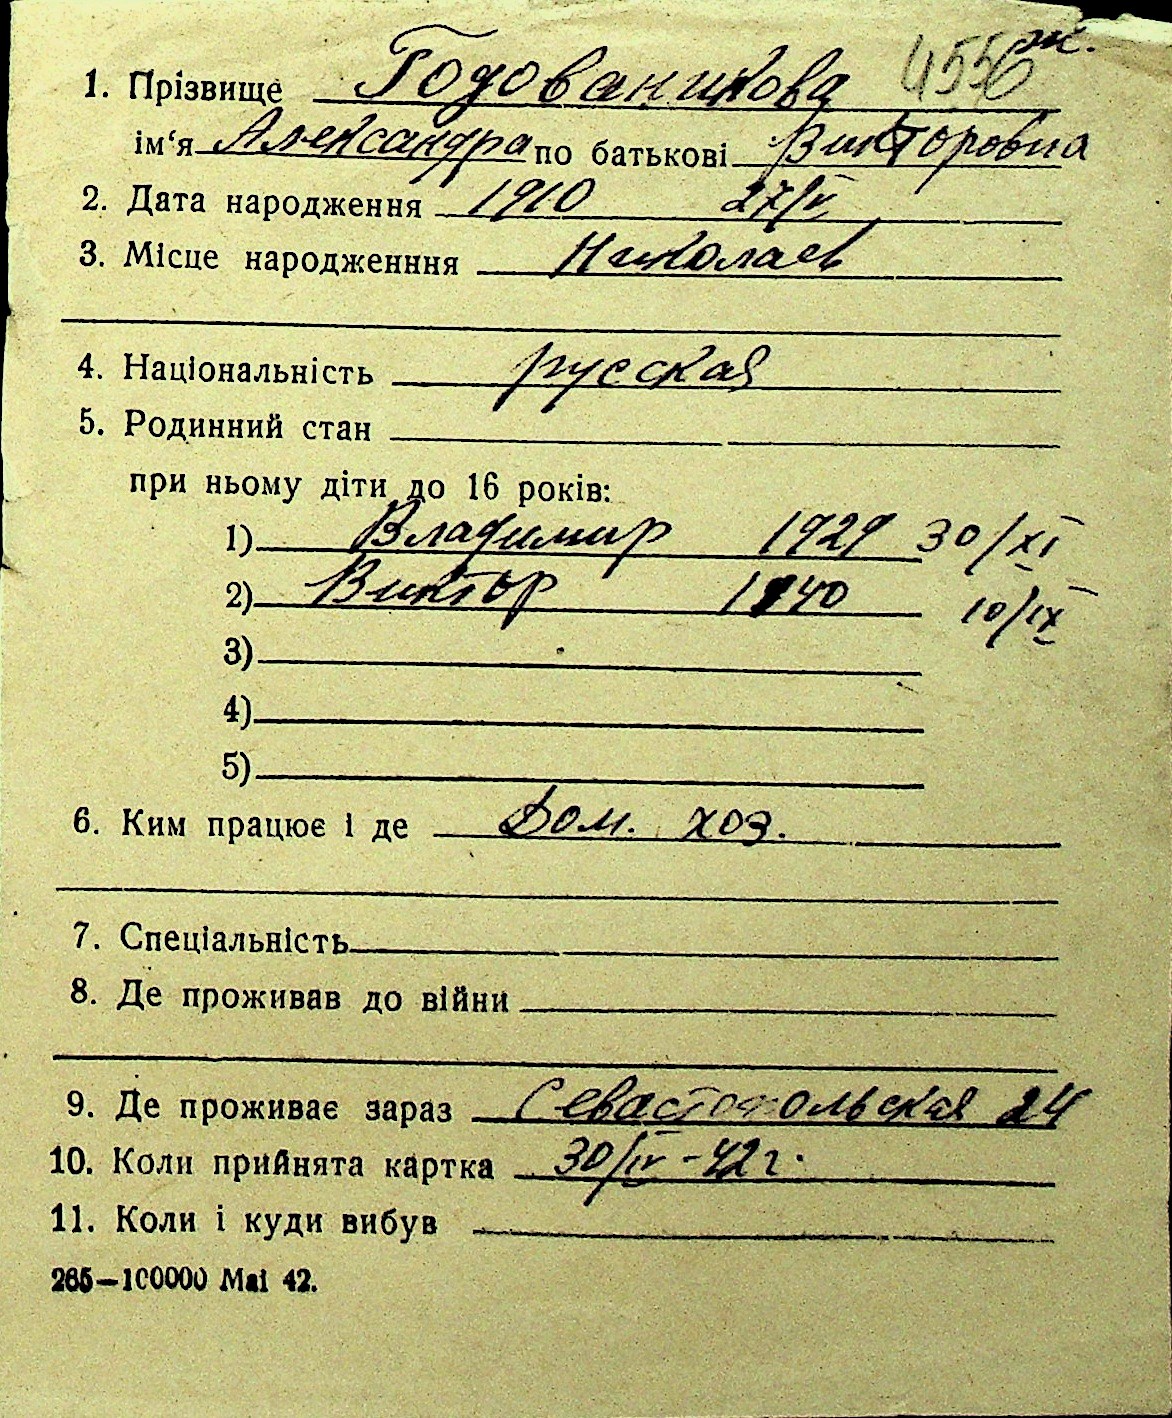 4556 ж.
1. Прізвище Годованикова
ім‘я Александра по батькові Викторовна
2. Дата народження 1910 27/V
3. Місце народженння Николаев
4. Національність русская
5. Родинний стан
при ньому діти до 16 років:
1) Владимир 1929 30/XI
2) Виктор 1940 10/IX
3)
4)
5)
6. Ким працює і де Дом. хоз.
7. Спеціальність
8. Де проживав до війни
9. Де проживає зараз Севастопольская 24
10. Коли прийнята картка 30/IV-42 г.
11. Коли і куди вибув
265—100000 Маі 42.